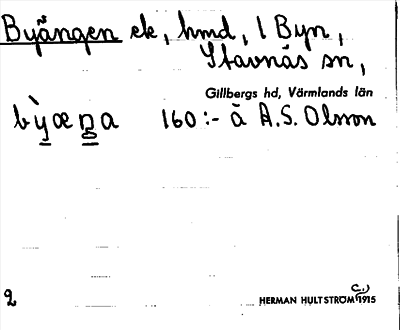 Byängen ek, hmd, 1 Byn,
Stavnäs sn,
Gillbergs hd, Värmlands län
bỳæŋa 160:- å A.S. Olsson
2
HERMAN HULTSTRÖM C.) 1915